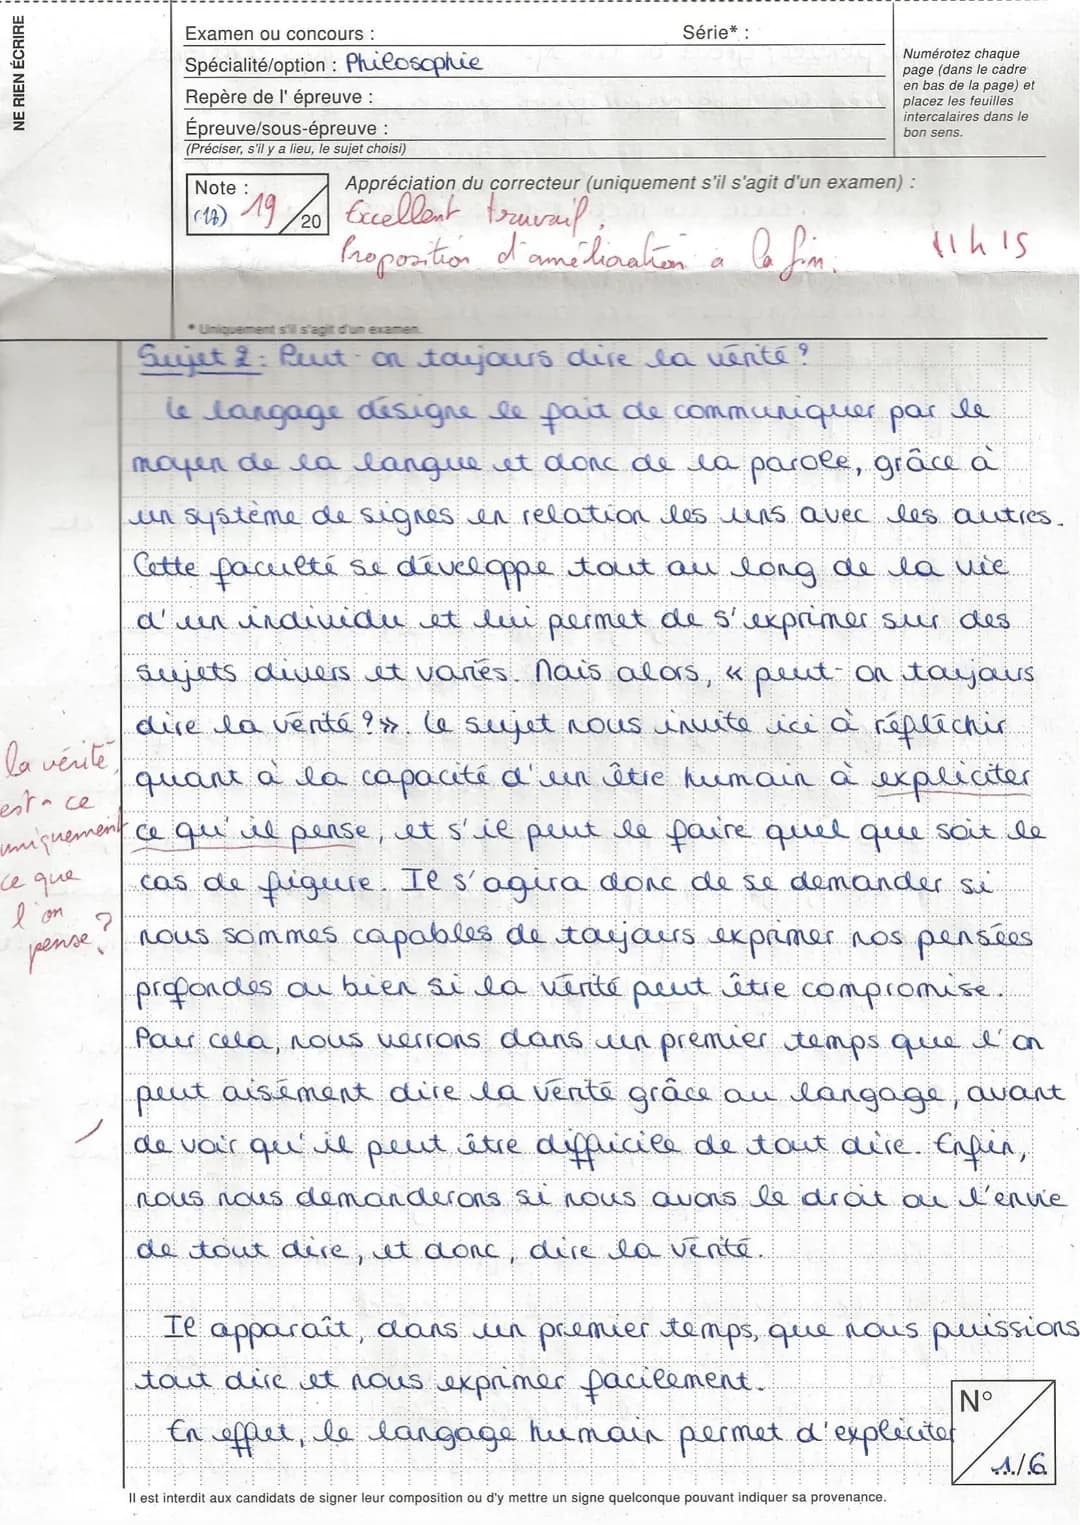 NE RIEN ÉCRIRE
Examen ou concours :
Série* :
Spécialité/option : Philosophie
Repère de l' épreuve :
Épreuve/sous-épreuve :
(Préciser, s'il y a lieu, le sujet choisi)
Numérotez chaque
page (dans le cadre
en bas de la page) et
placez les feuilles
intercalaires dans le
bon sens.
Note :
(18) 19 /20
Appréciation du correcteur (uniquement s'il s'agit d'un examen) :
Excellent travail.
Proposition d'amélioration à la fin.
11h15
* Uniquement s'il s'agit d'un examen.
Sujet 2 : Peut-on toujours dire la vérité ?
Le langage désigne le fait de communiquer par le
moyen de la langue et donc de la parole, grâce à
un système de signes en relation les uns avec les autres.
Cette faculté se développe tout au long de la vie
d'un individu et lui permet de s'exprimer sur des
sujets divers et variés. Mais alors, « peut-on toujours
dire la vérité ? ». Le sujet nous invite ici à réfléchir
quant à la capacité d'un être humain à expliciter
ce qu'il pense, et s'il peut le faire quel que soit le
cas de figure. Il s'agira donc de se demander si
nous sommes capables de toujours exprimer nos pensées
profondes ou bien si la vérité peut être compromise.
Pour cela, nous verrons dans un premier temps que l'on
peut aisément dire la vérité grâce au langage, avant
de voir qu'il peut être difficile de tout dire. Enfin,
nous nous demanderons si nous avons le droit ou l'envie
de tout dire, et donc, dire la vérité.
la vérité,
est-ce
uniquement
ce que
l'on
pense ?
Il apparaît, dans un premier temps, que nous puissions
tout dire et nous exprimer facilement.
En effet, le langage humain permet d'expliciter
N°
1/6
Il est interdit aux candidats de signer leur composition ou d'y mettre un signe quelconque pouvant indiquer sa provenance.